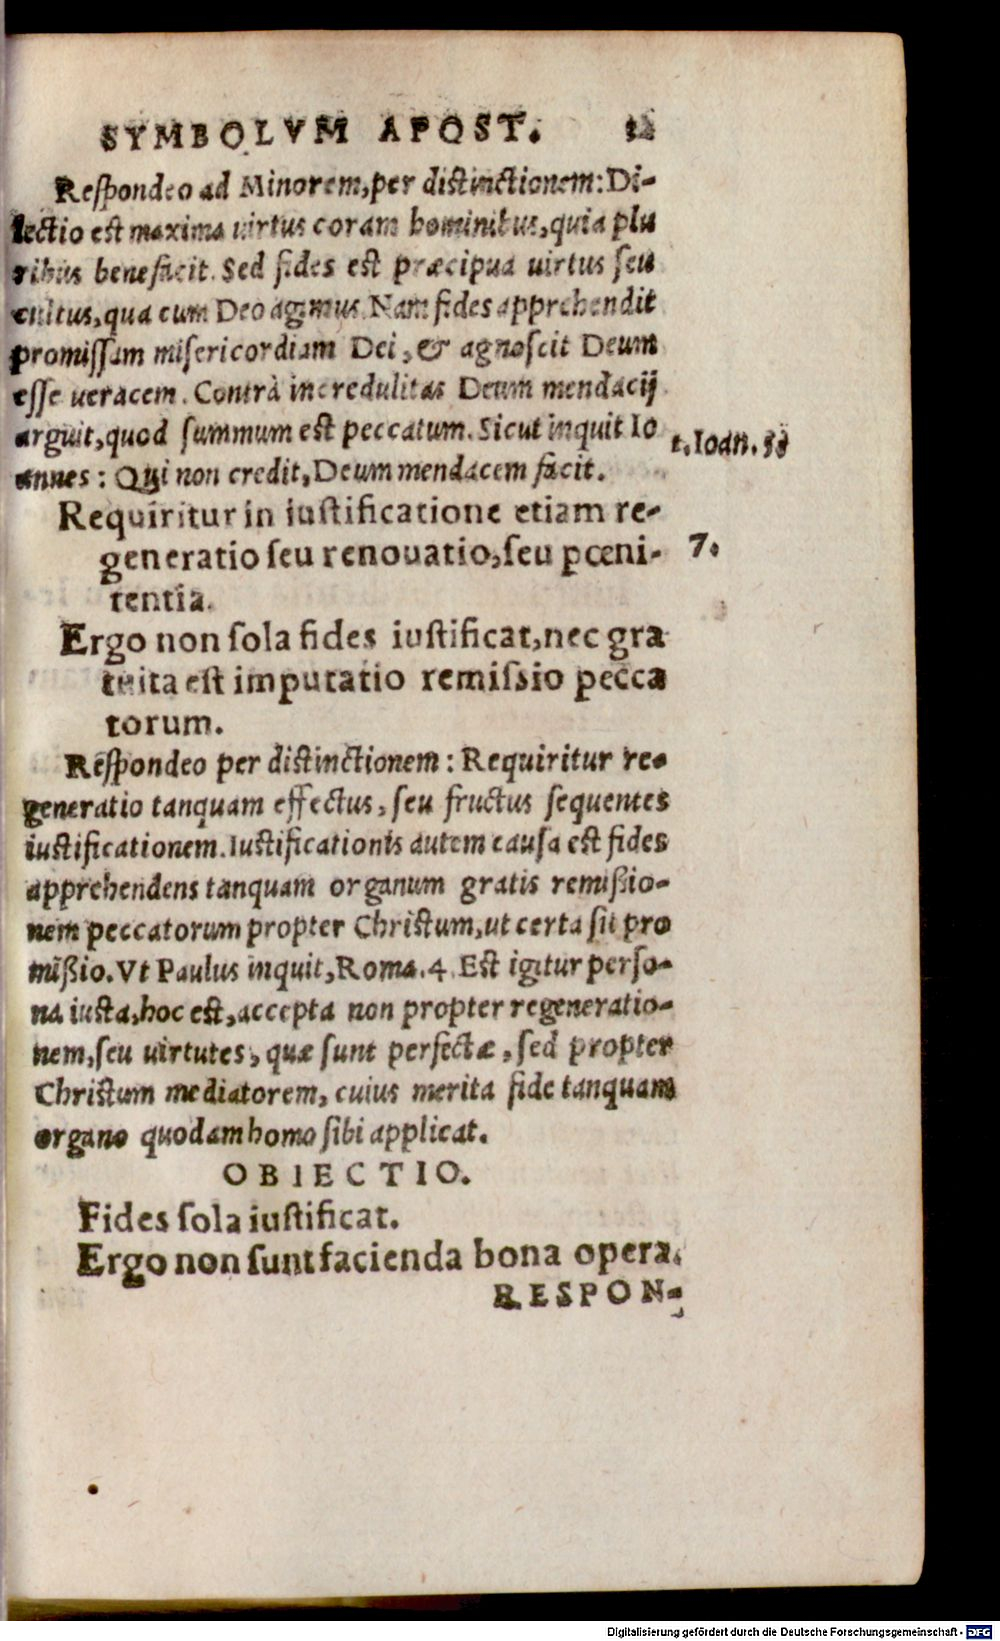 SYMBOLVM APOST. 12
Respondeo ad Minorem, per distinctionem: Di-
lectio est maxima uirtus coram hominibus, quia plu
ribus benefacit. Sed fides est præcipua uirtus seu
cultus, qua cum Deo agimus. Nam fides apprehendit
promissam misericordiam Dei, & agnoscit Deum
esse ueracem. Contrà incredulitas Deum mendacij
arguit, quod summum est peccatum. Sicut inquit Io
annes: Qui non credit, Deum mendacem facit.
1. Ioan. 5
Requiritur in iustificatione etiam re-
generatio seu renouatio, seu pœni-
tentia.
7.
Ergo non sola fides iustificat, nec gra
tuita est imputatio remissio pecca
torum.
Respondeo per distinctionem: Requiritur re-
generatio tanquam effectus, seu fructus sequentes
iustificationem. Iustificationis autem causa est fides
apprehendens tanquam organum gratis remißio-
nem peccatorum propter Christum, ut certa sit pro
mißio. Vt Paulus inquit, Roma. 4. Est igitur perso-
na iusta, hoc est, accepta non propter regeneratio-
nem, seu uirtutes, quæ sunt perfectæ, sed propter
Christum mediatorem, cuius merita fide tanquam
organo quodam homo sibi applicat.
OBIECTIO.
Fides sola iustificat.
Ergo non sunt facienda bona opera.
RESPON-
Digitalisierung gefördert durch die Deutsche Forschungsgemeinschaft - DFG